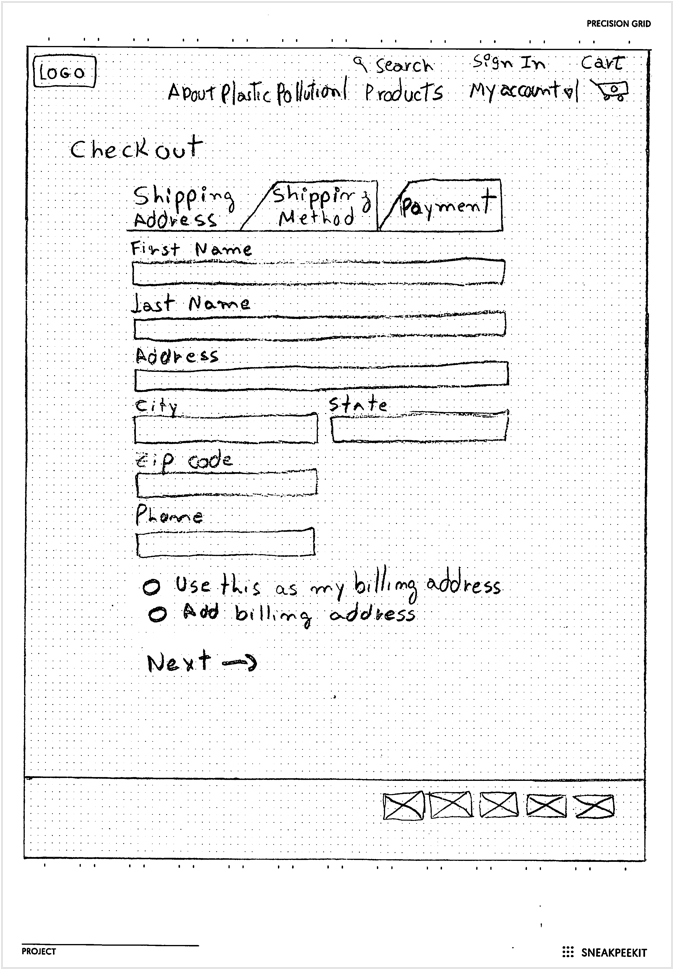 PRECISION GRID
LOGO
Search Sign In Cart
About Plastic Pollution Products My account
Checkout
Shipping Address
Shipping Method
Payment
First Name
Last Name
Address
City State
Zip code
Phone
Use this as my billing address
Add billing address
Next →
PROJECT
SNEAKPEEKIT